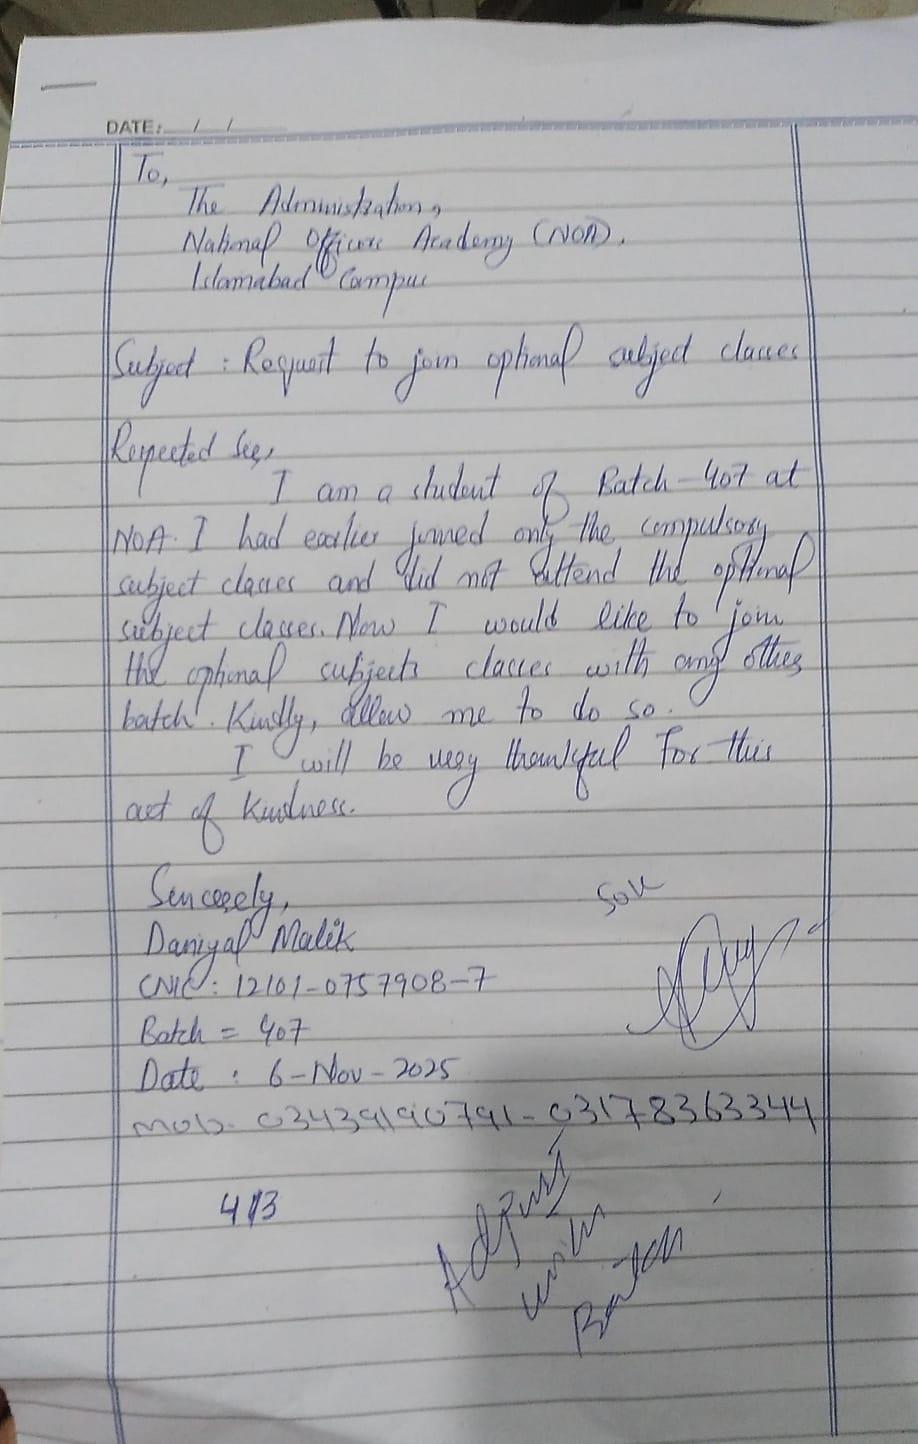 DATE: / /
To,
The Administration,
National Officers Academy (NOA),
Islamabad Campus
Subject : Request to join optional subject classes
Respected Sir,
I am a student of Batch-407 at
NOA. I had earlier joined only the compulsory
subject classes and did not attend the optional
subject classes. Now I would like to join
the optional subjects classes with any other
batch. Kindly, allow me to do so.
I will be very thankful for this
act of kindness.
Sincerely,
Daniyal Malik
CNIC: 12101-0757908-7
Batch = 407
Date : 6-Nov-2025
Mob. 03439190791-03178363344
413
Adjust
with
Batch